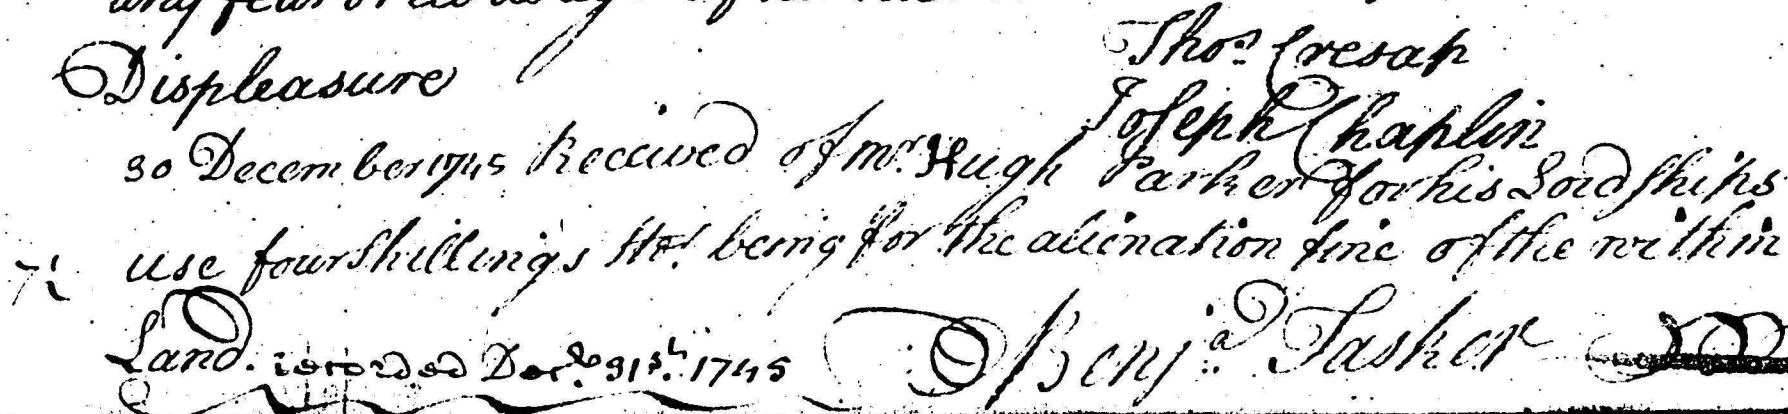 any fear of
Displeasure
Thos. Cresap
Joseph Chaplin
30 December 1745 Received of mr. Hugh Parker for his Lordships
use four Shillings Ster. being for the alienation fine of the within
Land. recorded Decr. 31st. 1745 Benja. Tasker